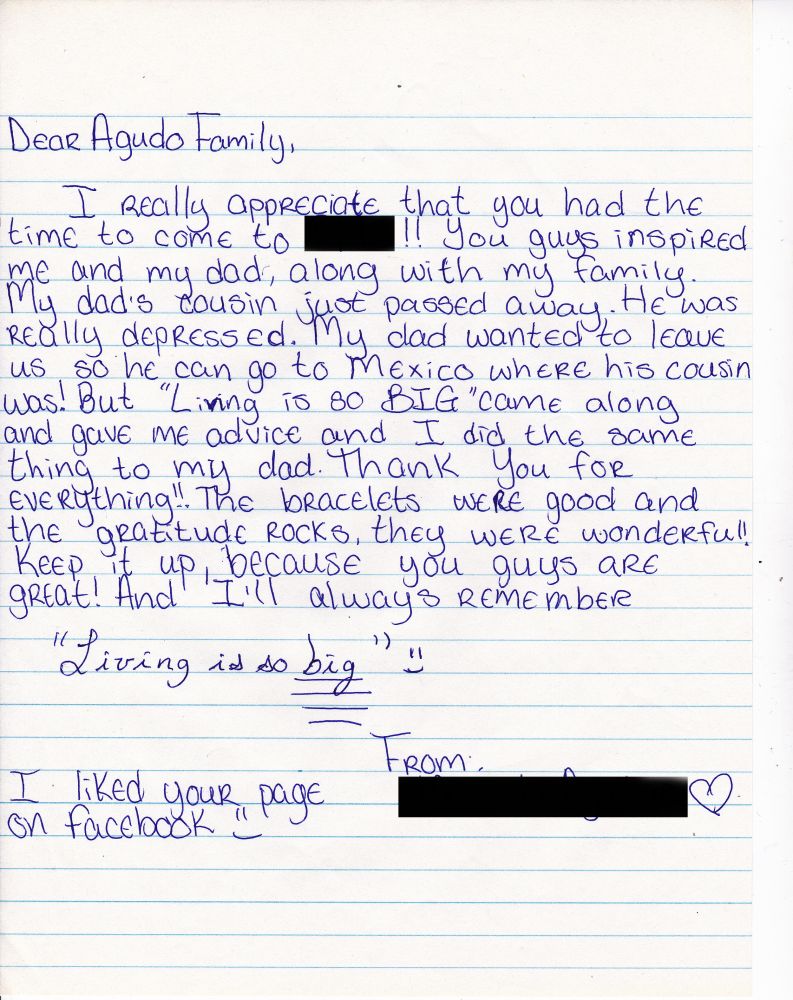 Dear Agudo Family,
I really appreciate that you had the
time to come to !! You guys inspired
me and my dad, along with my family.
My dad's cousin just passed away. He was
really depressed. My dad wanted to leave
us so he can go to Mexico where his cousin
was! But "Living is so BIG" came along
and gave me advice and I did the same
thing to my dad. Thank You for
everything!! The bracelets were good and
the gratitude rocks, they were wonderful!!
Keep it up, because you guys are
great! And I'll always remember
"Living is so big"
From:
I liked your page
on facebook